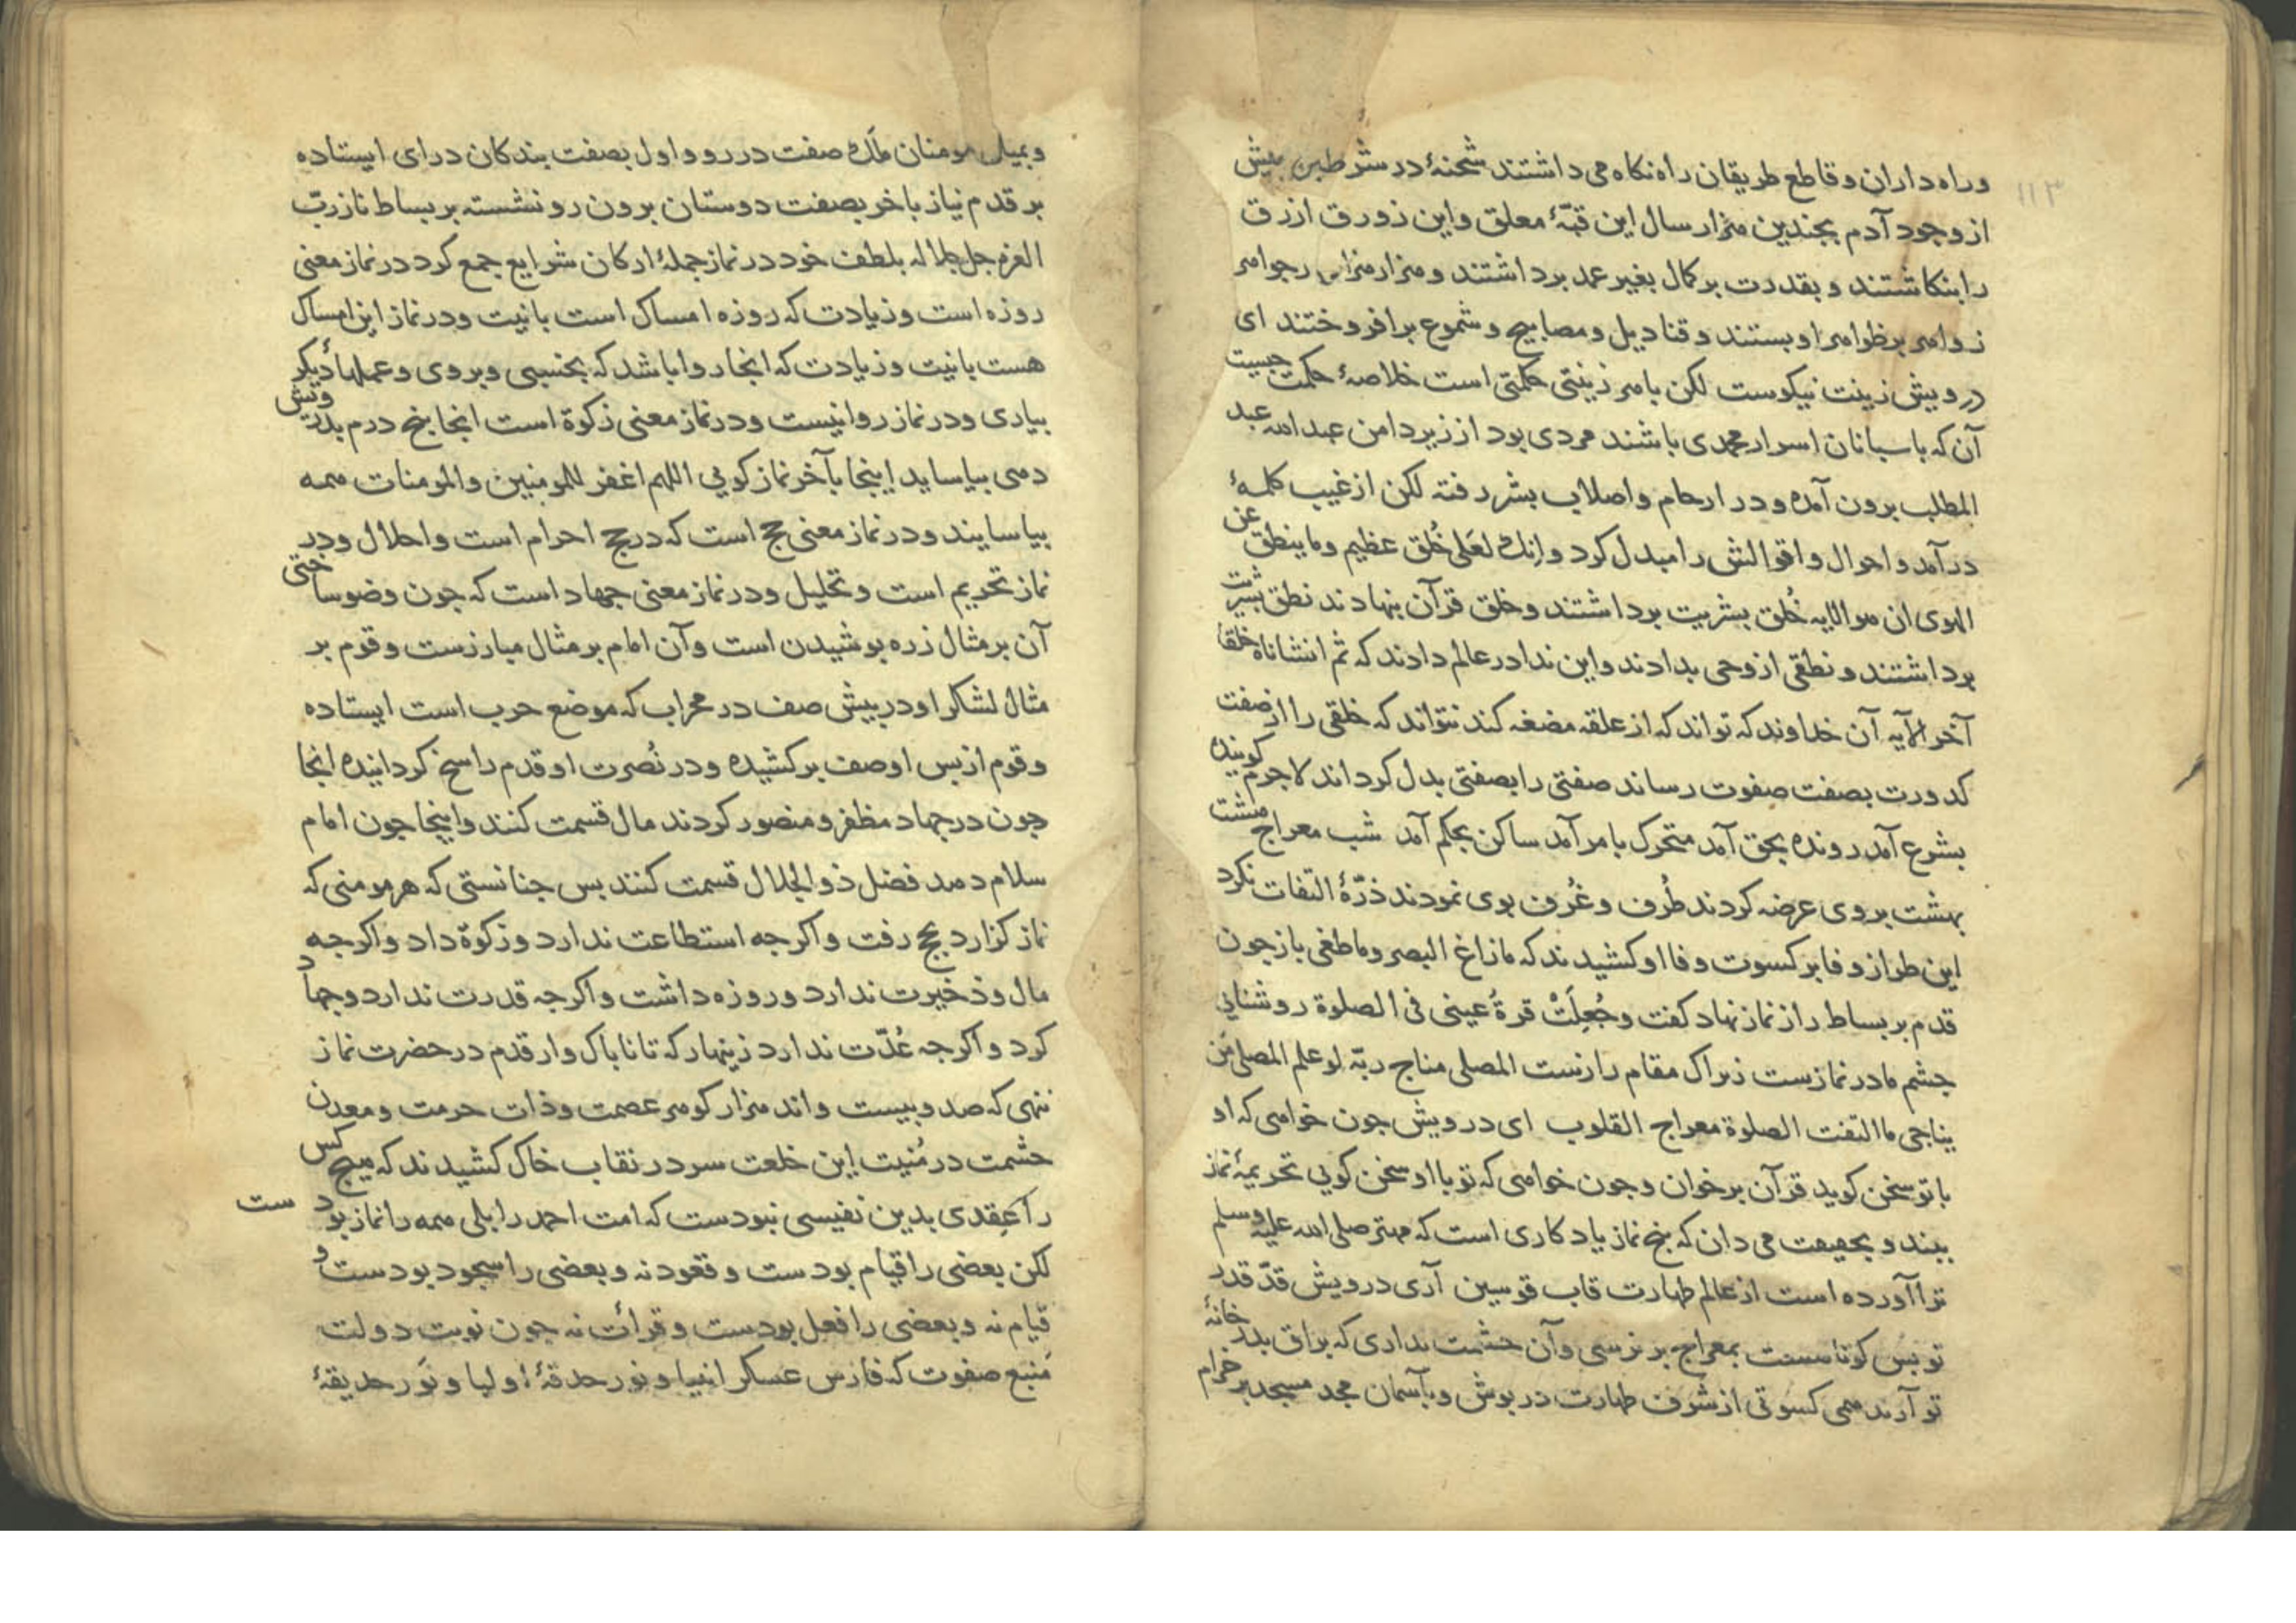 ۱۱۳
وراه داران و قاطع طریقان راه نکاه می داشتند شحنهٔ در شرطین بیش
از وجود آدم بجندین هزار سال این قبّهٔ معلق و این زورق ازرق
را بنکاشتند و بقدرت بر کمال بغیر عمد برداشتند و هزار هزار جواهر
زواهر بر ظواهر او بستند و قنادیل و مصابیح و شموع برافروختند ای
درویش زینت نیکوست لکن با هر زینتی حکمتی است خلاصهٔ حکمت جیست
آن که باسبانان اسرار محمدی باشند مردی بود از زیر دامن عبد الله عبد
المطلب برون آمده و در ارحام و اصلاب بشر رفته لکن از غیب کلمهٔ
درآمد و احوال و اقوالش را مبدل کرد و اِنك لعَلی خُلق عظیم وما ینطق عن
الهوی ان هو الایه خُلق بشریت برداشتند و خلق قرآن بنهادند نطق بشریت
برداشتند و نطقی از وحی بدادند و این ندا در عالم دادند که ثم انشاناه خلقا
آخر الآیه آن خداوند که تواند که از علقه مضغه کند نتواند که خلقی را از صفت
کدورت بصفت صفوت رساند صفتی را بصفتی بدل کرداند لاجرم کوینده
بشرع آمد رونده بحق آمد متحرک بامر آمد ساکن بحکم آمد شب معراج هشت
بهشت بروی عرضه کردند طُرف و غُرف بوی نمودند ذرّهٔ التفات نکرد
این طراز وفا بر کسوت وفا او کشیدند که مازاغ البصر وماطغی باز جون
قدم بر بساط راز نماز نهاد کفت وجُعِلَتْ قرةُ عینی فی الصلوة روشنایی
جشم ما در نمازست زیراک مقام رازست المصلی مناج ربّه لو علم المصلی مَن
یناجی ما التفت الصلوة معراج القلوب ای درویش جون خواهی که او
با تو سخن کوید قرآن برخوان و جون خواهی که تو با او سخن کویی تحریمهٔ نماز
ببند و بحقیقت می دان که بنج نماز یادکاری است که مهتر صلی الله علیه وسلم
ترا آورده است از عالم طهارت قاب قوسین آری درویش قدّ قدر
تو بس کوتاهست بمعراج بر نرسی و آن حشمت نداری که براق بدر خانهٔ
تو آرند همی کسوتی از شرف طهارت در بوش و بآسمان مجد مسجد برخرام
وبمیان مومنان ملَك صفت در رو و اول بصفت بندکان در ای ایستاده
بر قدم نیاز باخر بصفت دوستان برون رو نشسته بر بساط ناز ربّ
العزه جل جلاله بلطف خود در نماز جملهٔ ارکان شرایع جمع کرد در نماز معنی
روزه است و زیادت که روزه امساک است بانیت و در نماز این امساک
هست بانیت و زیادت که انجا روا باشد که بخسبی و بروی و عملهاء دیکر
بیاری و در نماز روا نیست و در نماز معنی زکوة است انجا بنج درم بدرویش
دهی بیاساید اینجا بآخر نماز کویی اللهم اغفر للمومنین والمومنات همه
بیاسایند و در نماز معنی حج است که در حج احرام است و احلال و در
نماز تحریم است و تحلیل و در نماز معنی جهاد است که جون وضو ساختی
آن بر مثال زره بوشیدن است و آن امام بر مثال مبارزست و قوم بر
مثال لشکر او در بیش صف در محراب که موضع حرب است ایستاده
و قوم از بس او صف برکشیده و در نُصرت او قدم راسخ کردانیده انجا
جون در جهاد مظفر و منصور کردند مال قسمت کنند و اینجا جون امام
سلام دهد فضل ذو الجلال قسمت کنند بس جنانستی که هر مومنی که
نماز کزارد بحج رفت و اکرجه استطاعت ندارد و زکوة داد و اکرجه
مال و ذخیرت ندارد و روزه داشت و اکرجه قدرت ندارد و جهاد
کرد و اکرجه عُدّت ندارد زینهار که تا ناباک وار قدم در حضرت نماز
ننهی که صد و بیست و اند هزار کوهر عصمت و ذات حرمت و معدن
حشمت در مُنیت این خلعت سر در نقاب خاک کشیدند که هیج کس
را عِقدی بدین نفیسی نبودست که امت احمد را بلی همه را نماز بودست
لکن بعضی را قیام بودست و قعود نه و بعضی را سجود بودست و
قیام نه و بعضی را فعل بودست و قرأت نه جون نوبت دولت
مَنبع صفوت که فارس عسکر انبیا و نور حدقهٔ اولیا و نَور حدیقهٔ